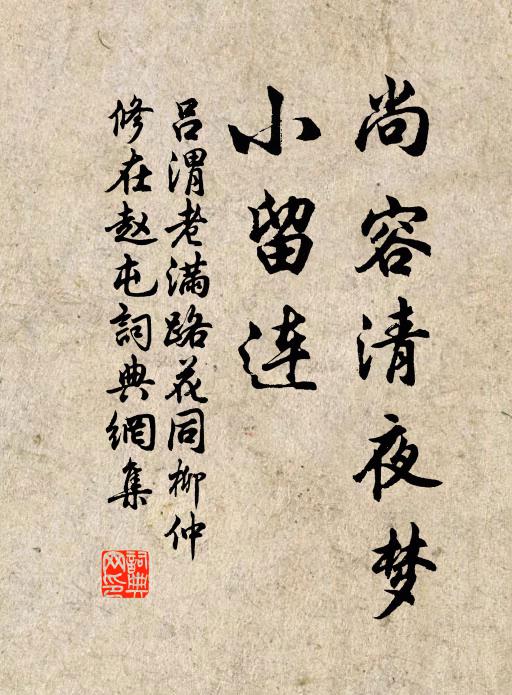 尚容清夜梦
小留连
吕渭老满路花同柳仲
修在赵屯詞典網集
詞典
网印